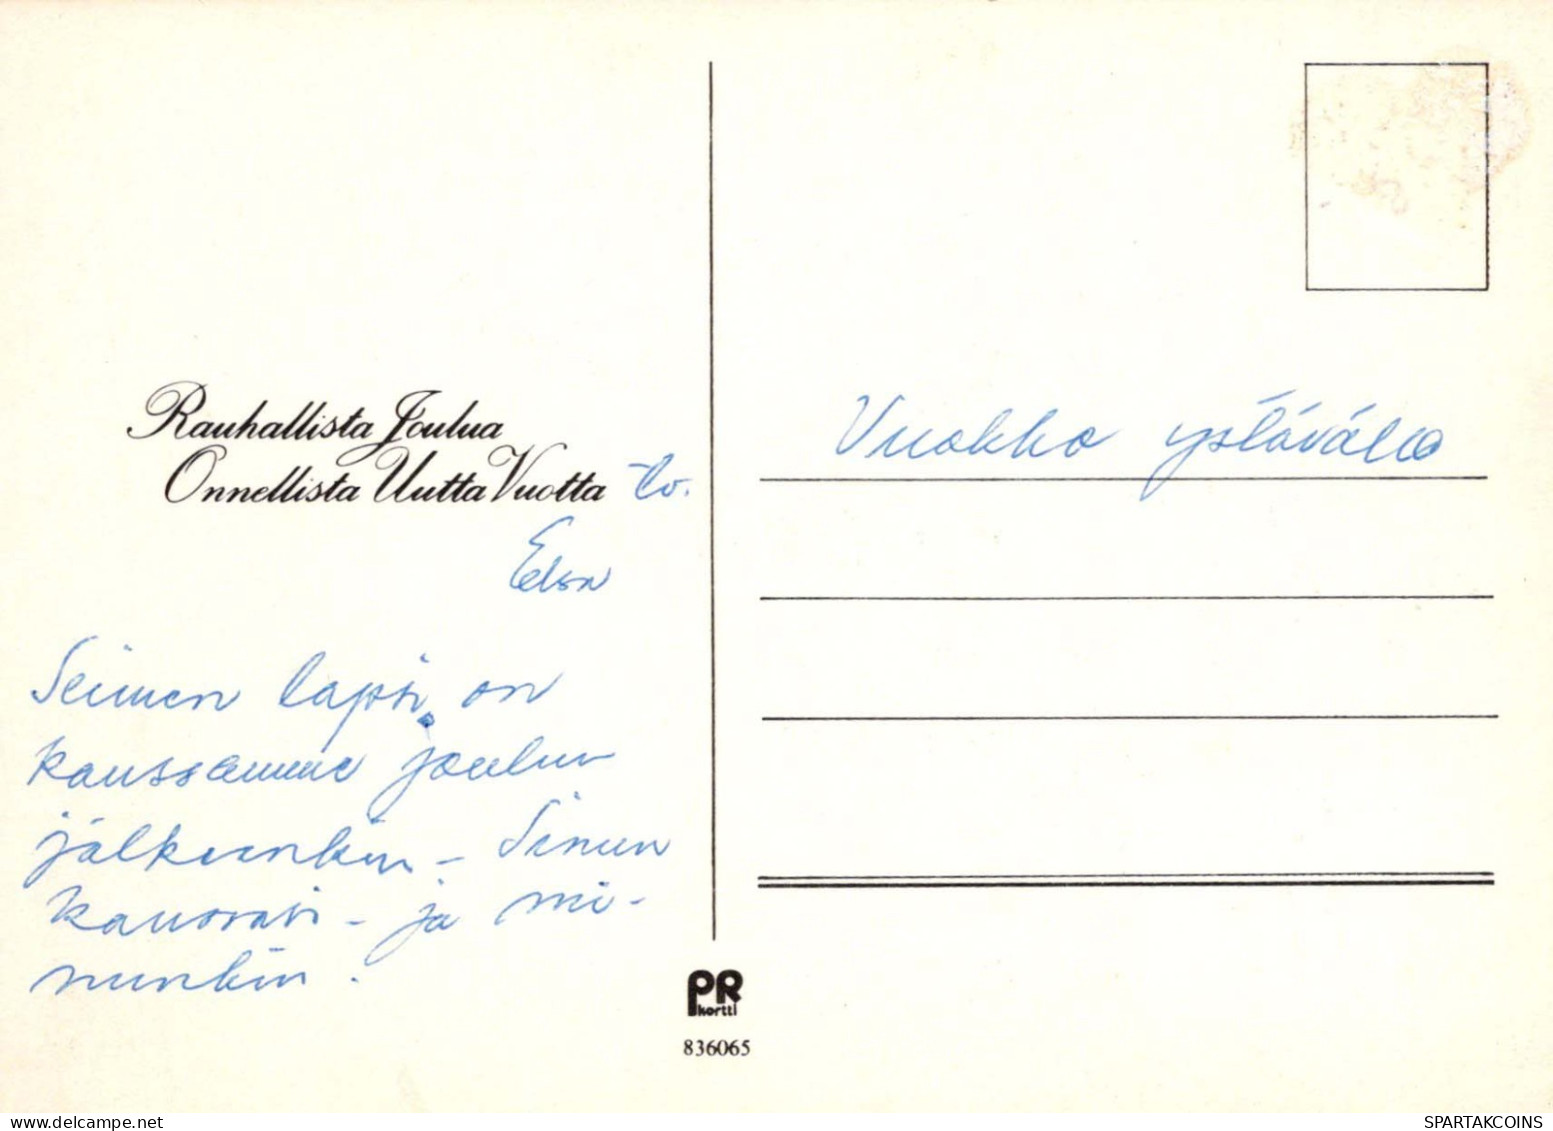 Rauhallista Joulua
Onnellista Uutta Vuotta tv.
Elsa
Seimen lapsi on
kanssamme joulun
jälkeenkin – Sinun
kanssasi – ja mi-
nunkin.
Vuokko ystävälle
PR
kortti
836065
delcampe.net
SPARTAKCOINS